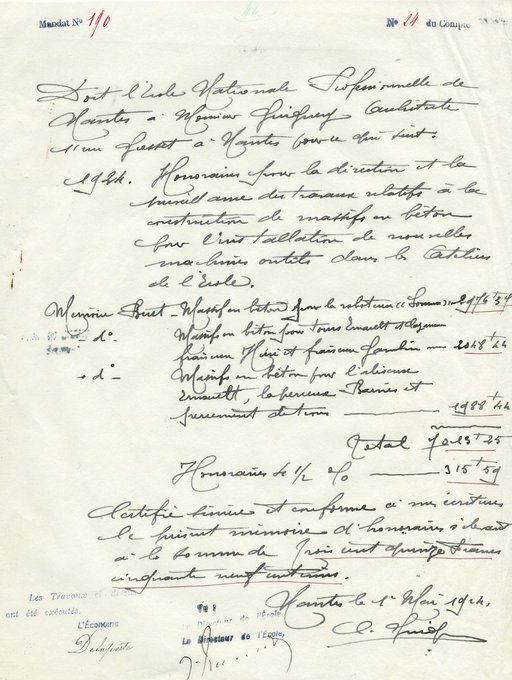 Mandat Nº 190
Nº 24 du Compte
Doit l'Ecole Nationale Professionnelle de
Nantes à Monsieur Guiguery Architecte
11 rue Gresset à Nantes pour ce qui suit:
1924. Honoraires pour la direction et la
surveillance des travaux relatifs à la
construction de massifs en béton
pour l'installation de nouvelles
machines outils dans les Ateliers
de l'Ecole.
Mémoire Buet - Massif en béton pour la raboteuse
dº - Massifs en béton pour Tours Ernault et
fraiseuse Huré et fraiseuse Gambin 2048 f 44
dº - Massifs en béton pour l'aléseuse
Ernault, la perceuse Bariés et
1988 f 44
Total 7013 f 25
Honoraires 4 1/2 % 315 f 59
Certifié sincère et conforme à mes écritures
le présent mémoire d'honoraires s'élevant
à la somme de Trois cent quinze Francs
cinquante neuf centimes.
Nantes le 1er Mai 1924.
Les Travaux et dessus
ont été exécutés.
L'Économe
Delaporte
Vu :
Le Directeur de l'École,
Le Directeur de l'École,